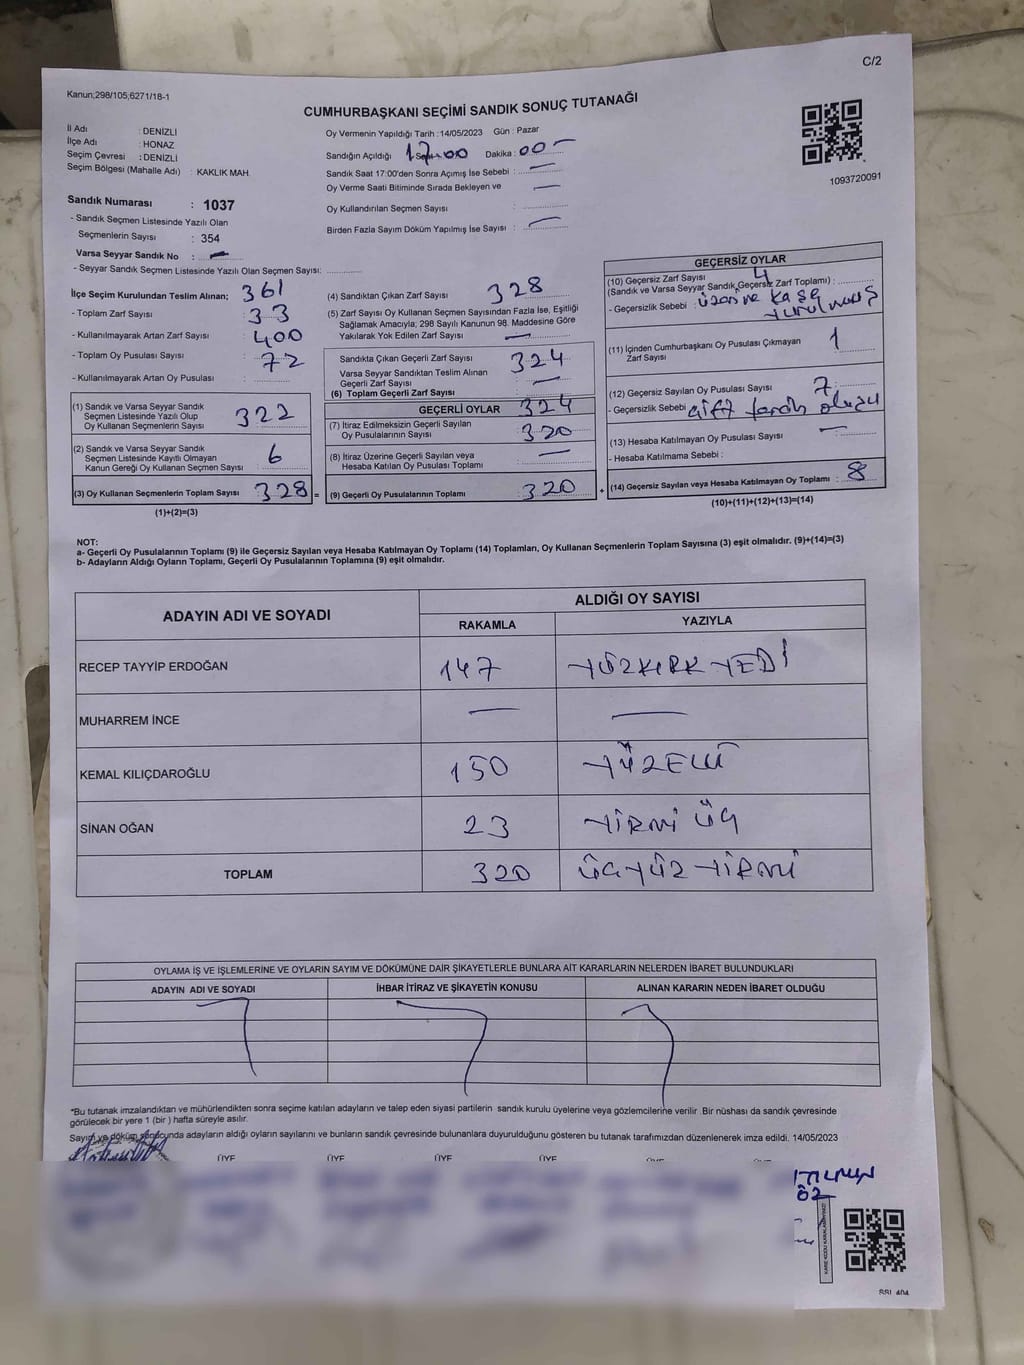 C/2
Kanun;298/105;6271/18-1
CUMHURBAŞKANI SEÇİMİ SANDIK SONUÇ TUTANAĞI
İl Adı : DENİZLİ
İlçe Adı : HONAZ
Seçim Çevresi : DENİZLİ
Seçim Bölgesi (Mahalle Adı) : KAKLIK MAH.
Oy Vermenin Yapıldığı Tarih : 14/05/2023 Gün : Pazar
Sandığın Açıldığı Saat 17:00 Dakika : 00 —
Sandık Saat 17:00'den Sonra Açımış İse Sebebi : —
Oy Verme Saati Bitiminde Sırada Bekleyen ve —
Oy Kullandırılan Seçmen Sayısı :
Birden Fazla Sayım Döküm Yapılmış İse Sayısı : —
1093720091
Sandık Numarası : 1037
- Sandık Seçmen Listesinde Yazılı Olan
Seçmenlerin Sayısı : 354
Varsa Seyyar Sandık No : —
- Seyyar Sandık Seçmen Listesinde Yazılı Olan Seçmen Sayısı:
İlçe Seçim Kurulundan Teslim Alınan; 361
- Toplam Zarf Sayısı : 33
- Kullanılmayarak Artan Zarf Sayısı : 400
- Toplam Oy Pusulası Sayısı : 72
- Kullanılmayarak Artan Oy Pusulası :
(1) Sandık ve Varsa Seyyar Sandık
Seçmen Listesinde Yazılı Olup
Oy Kullanan Seçmenlerin Sayısı : 322
(2) Sandık ve Varsa Seyyar Sandık
Seçmen Listesinde Kayıtlı Olmayan
Kanun Gereği Oy Kullanan Seçmen Sayısı : 6
(3) Oy Kullanan Seçmenlerin Toplam Sayısı : 328 =
(1)+(2)=(3)
(4) Sandıktan Çıkan Zarf Sayısı : 328
(5) Zarf Sayısı Oy Kullanan Seçmen Sayısından Fazla İse, Eşitliği
Sağlamak Amacıyla; 298 Sayılı Kanunun 98. Maddesine Göre
Yakılarak Yok Edilen Zarf Sayısı : —
Sandıkta Çıkan Geçerli Zarf Sayısı : 324
Varsa Seyyar Sandıktan Teslim Alınan
Geçerli Zarf Sayısı : —
(6) Toplam Geçerli Zarf Sayısı : 324
GEÇERLİ OYLAR
(7) İtiraz Edilmeksizin Geçerli Sayılan
Oy Pusulalarının Sayısı : 320
(8) İtiraz Üzerine Geçerli Sayılan veya
Hesaba Katılan Oy Pusulası Toplamı : —
(9) Geçerli Oy Pusulalarının Toplamı : 320 +
GEÇERSİZ OYLAR
(10) Geçersiz Zarf Sayısı 4
(Sandık ve Varsa Seyyar Sandık Geçersiz Zarf Toplamı) :
- Geçersizlik Sebebi : üzerine kaşe
vurulmamış
(11) İçinden Cumhurbaşkanı Oy Pusulası Çıkmayan
Zarf Sayısı : 1
(12) Geçersiz Sayılan Oy Pusulası Sayısı : 7
- Geçersizlik Sebebi : çift tercih oluşu
(13) Hesaba Katılmayan Oy Pusulası Sayısı : —
- Hesaba Katılmama Sebebi :
(14) Geçersiz Sayılan veya Hesaba Katılmayan Oy Toplamı : 8
(10)+(11)+(12)+(13)=(14)
NOT:
a- Geçerli Oy Pusulalarının Toplamı (9) ile Geçersiz Sayılan veya Hesaba Katılmayan Oy Toplamı (14) Toplamları, Oy Kullanan Seçmenlerin Toplam Sayısına (3) eşit olmalıdır. (9)+(14)=(3)
b- Adayların Aldığı Oyların Toplamı, Geçerli Oy Pusulalarının Toplamına (9) eşit olmalıdır.
ADAYIN ADI VE SOYADI
ALDIĞI OY SAYISI
RAKAMLA YAZIYLA
RECEP TAYYİP ERDOĞAN 147 YÜZKIRK YEDİ
MUHARREM İNCE — —
KEMAL KILIÇDAROĞLU 150 YÜZELLİ
SİNAN OĞAN 23 YİRMİ ÜÇ
TOPLAM 320 ÜÇYÜZ YİRMİ
OYLAMA İŞ VE İŞLEMLERİNE VE OYLARIN SAYIM VE DÖKÜMÜNE DAİR ŞİKAYETLERLE BUNLARA AİT KARARLARIN NELERDEN İBARET BULUNDUKLARI
ADAYIN ADI VE SOYADI İHBAR İTİRAZ VE ŞİKAYETİN KONUSU ALINAN KARARIN NEDEN İBARET OLDUĞU
*Bu tutanak imzalandıktan ve mühürlendikten sonra seçime katılan adayların ve talep eden siyasi partilerin sandık kurulu üyelerine veya gözlemcilerine verilir Bir nüshası da sandık çevresinde
görülecek bir yere 1 (bir ) hafta süreyle asılır.
Sayım ve döküm sonucunda adayların aldığı oyların sayılarını ve bunların sandık çevresinde bulunanlara duyurulduğunu gösteren bu tutanak tarafımızdan düzenlenerek imza edildi. 14/05/2023
ÜYE ÜYE ÜYE ÜYE